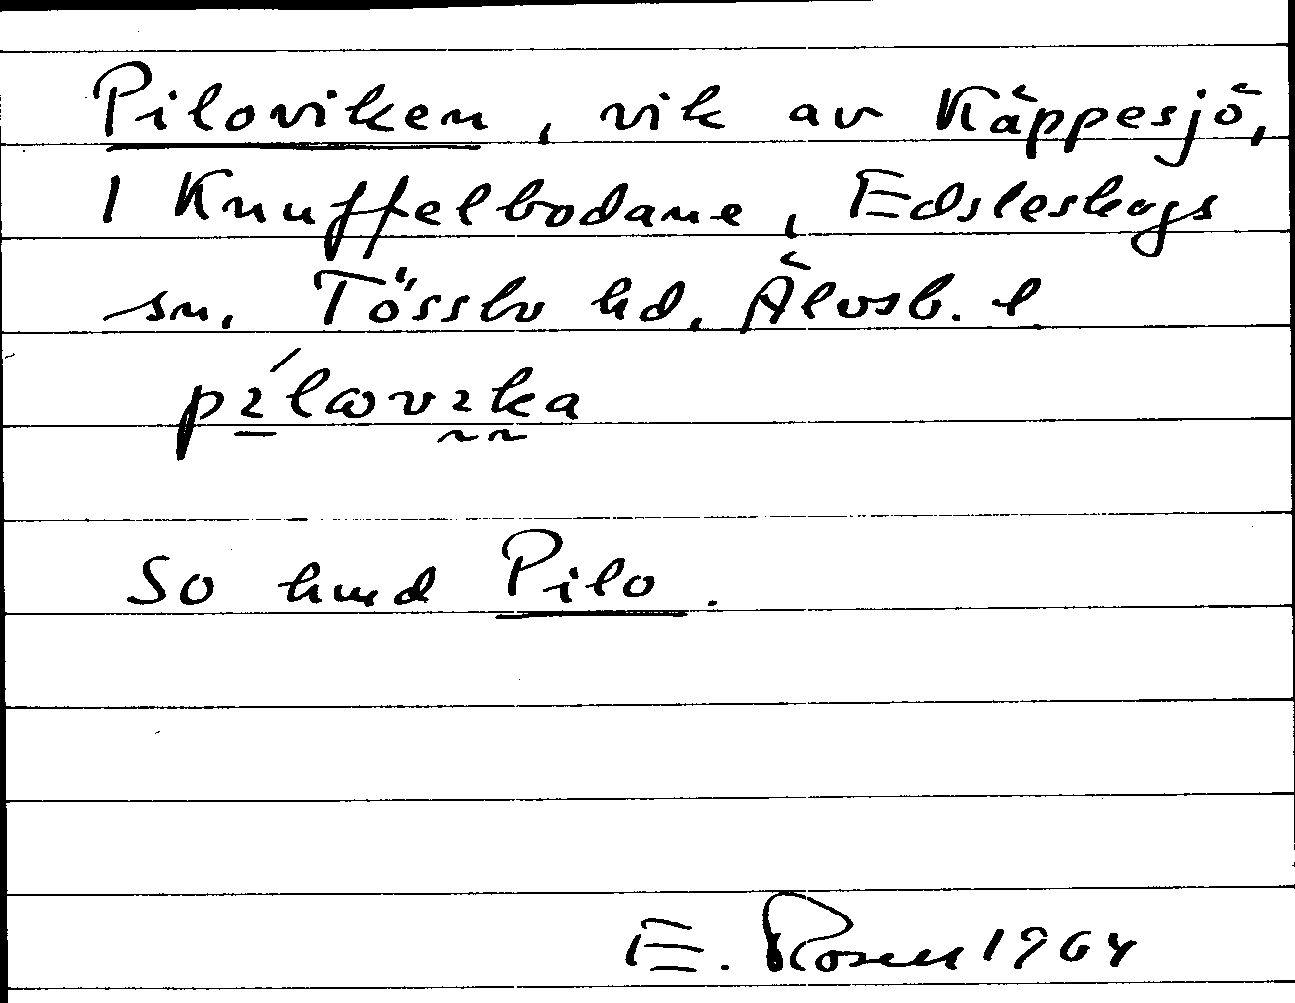 Piloviken, vik av Käppesjö,
I Knuffelbodane, Edsleskogs
sn. Tössbo hd. Älvsb. l
pílωvıka
So hund Pilo.
E. Rosen 1964